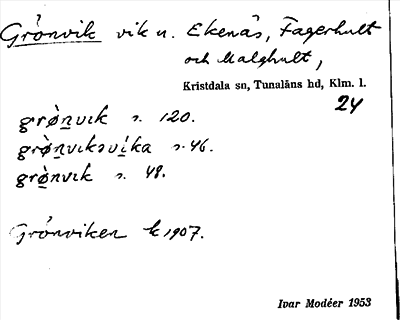 Grönvik vik u. Ekenäs, Fagerhult
och Malghult,
Kristdala sn, Tunaläns hd, Klm. l.
24
grò̤nvɩk s. 120.
grò̤nvɩksvíka s. 46.
grò̤nvɩk s. 48.
Grönviken k 1907.
Ivar Modéer 1953